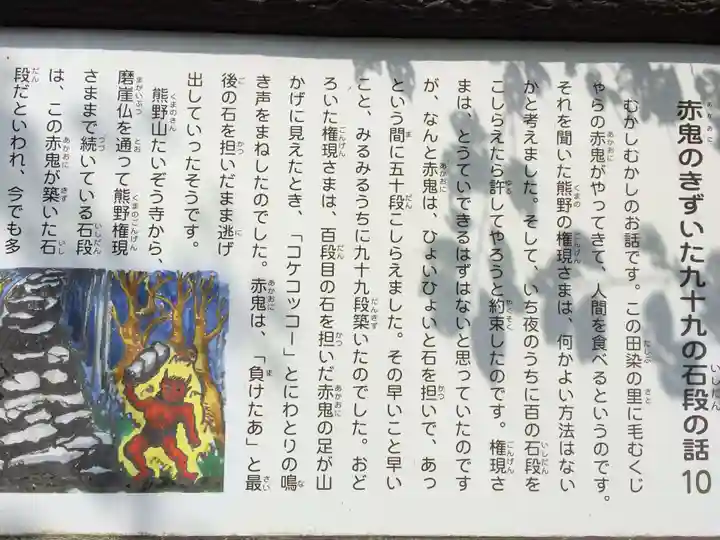 赤鬼のきずいた九十九の石段の話 10
むかしむかしのお話です。この田染の里に毛むくじ
ゃらの赤鬼がやってきて、人間を食べるというのです。
それを聞いた熊野の権現さまは、何かよい方法はない
かと考えました。そして、いち夜のうちに百の石段を
こしらえたら許してやろうと約束したのです。権現さ
まは、とうていできるはずはないと思っていたのです
が、なんと赤鬼は、ひょいひょいと石を担いで、あっ
という間に五十段こしらえました。その早いこと早い
こと、みるみるうちに九十九段築いたのでした。おど
ろいた権現さまは、百段目の石を担いだ赤鬼の足が山
かげに見えたとき、「コケコッコー」とにわとりの鳴
き声をまねしたのでした。赤鬼は、「負けたあ」と最
後の石を担いだまま逃げ
出していったそうです。
熊野山たいぞう寺から、
磨崖仏を通って熊野権現
さままで続いている石段
は、この赤鬼が築いた石
段だといわれ、今でも多